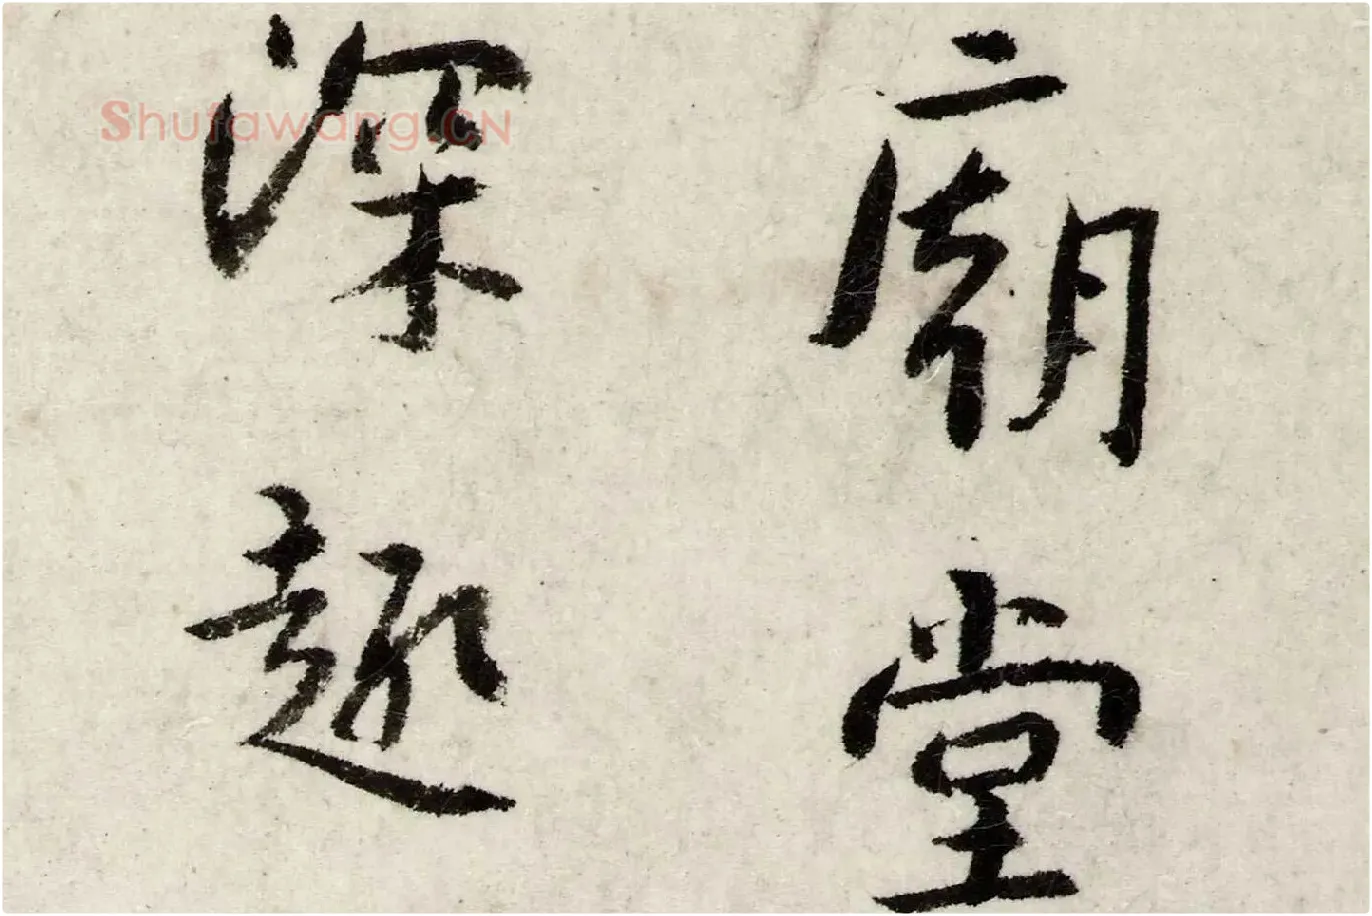 廟堂
深趣
Shufawang.CN